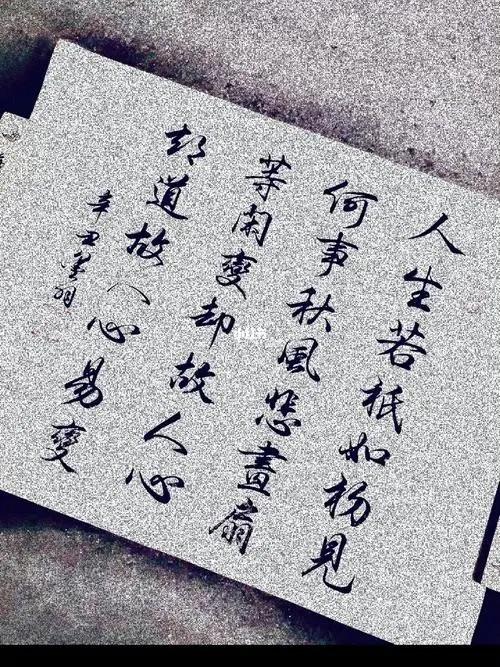 人生若祇如初見
何事秋風悲畫扇
等閑變却故人心
却道故人心易變
辛丑墨羽